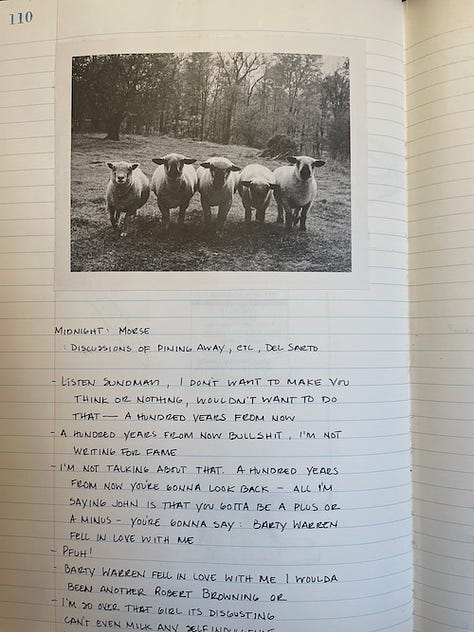 110
MIDNIGHT: MORSE
: DISCUSSIONS OF PINING AWAY, ETC, DEL SARTO
- LISTEN SUNDMAN, I DON'T WANT TO MAKE YOU
THINK OR NOTHING, WOULDN'T WANT TO DO
THAT — A HUNDRED YEARS FROM NOW
- A HUNDRED YEARS FROM NOW BULLSHIT, I'M NOT
WRITING FOR FAME
- I'M NOT TALKING ABOUT THAT. A HUNDRED YEARS
FROM NOW YOU'RE GONNA LOOK BACK - ALL I'M
SAYING JOHN IS THAT YOU GOTTA BE A PLUS OR
A MINUS - YOU'RE GONNA SAY: BARTY WARREN
FELL IN LOVE WITH ME
- PFUH!
- BARTY WARREN FELL IN LOVE WITH ME I WOULDA
BEEN ANOTHER ROBERT BROWNING OR
- I'M SO OVER THAT GIRL ITS DISGUSTING
CAN'T EVEN MILK ANY SELF INDULGENCE